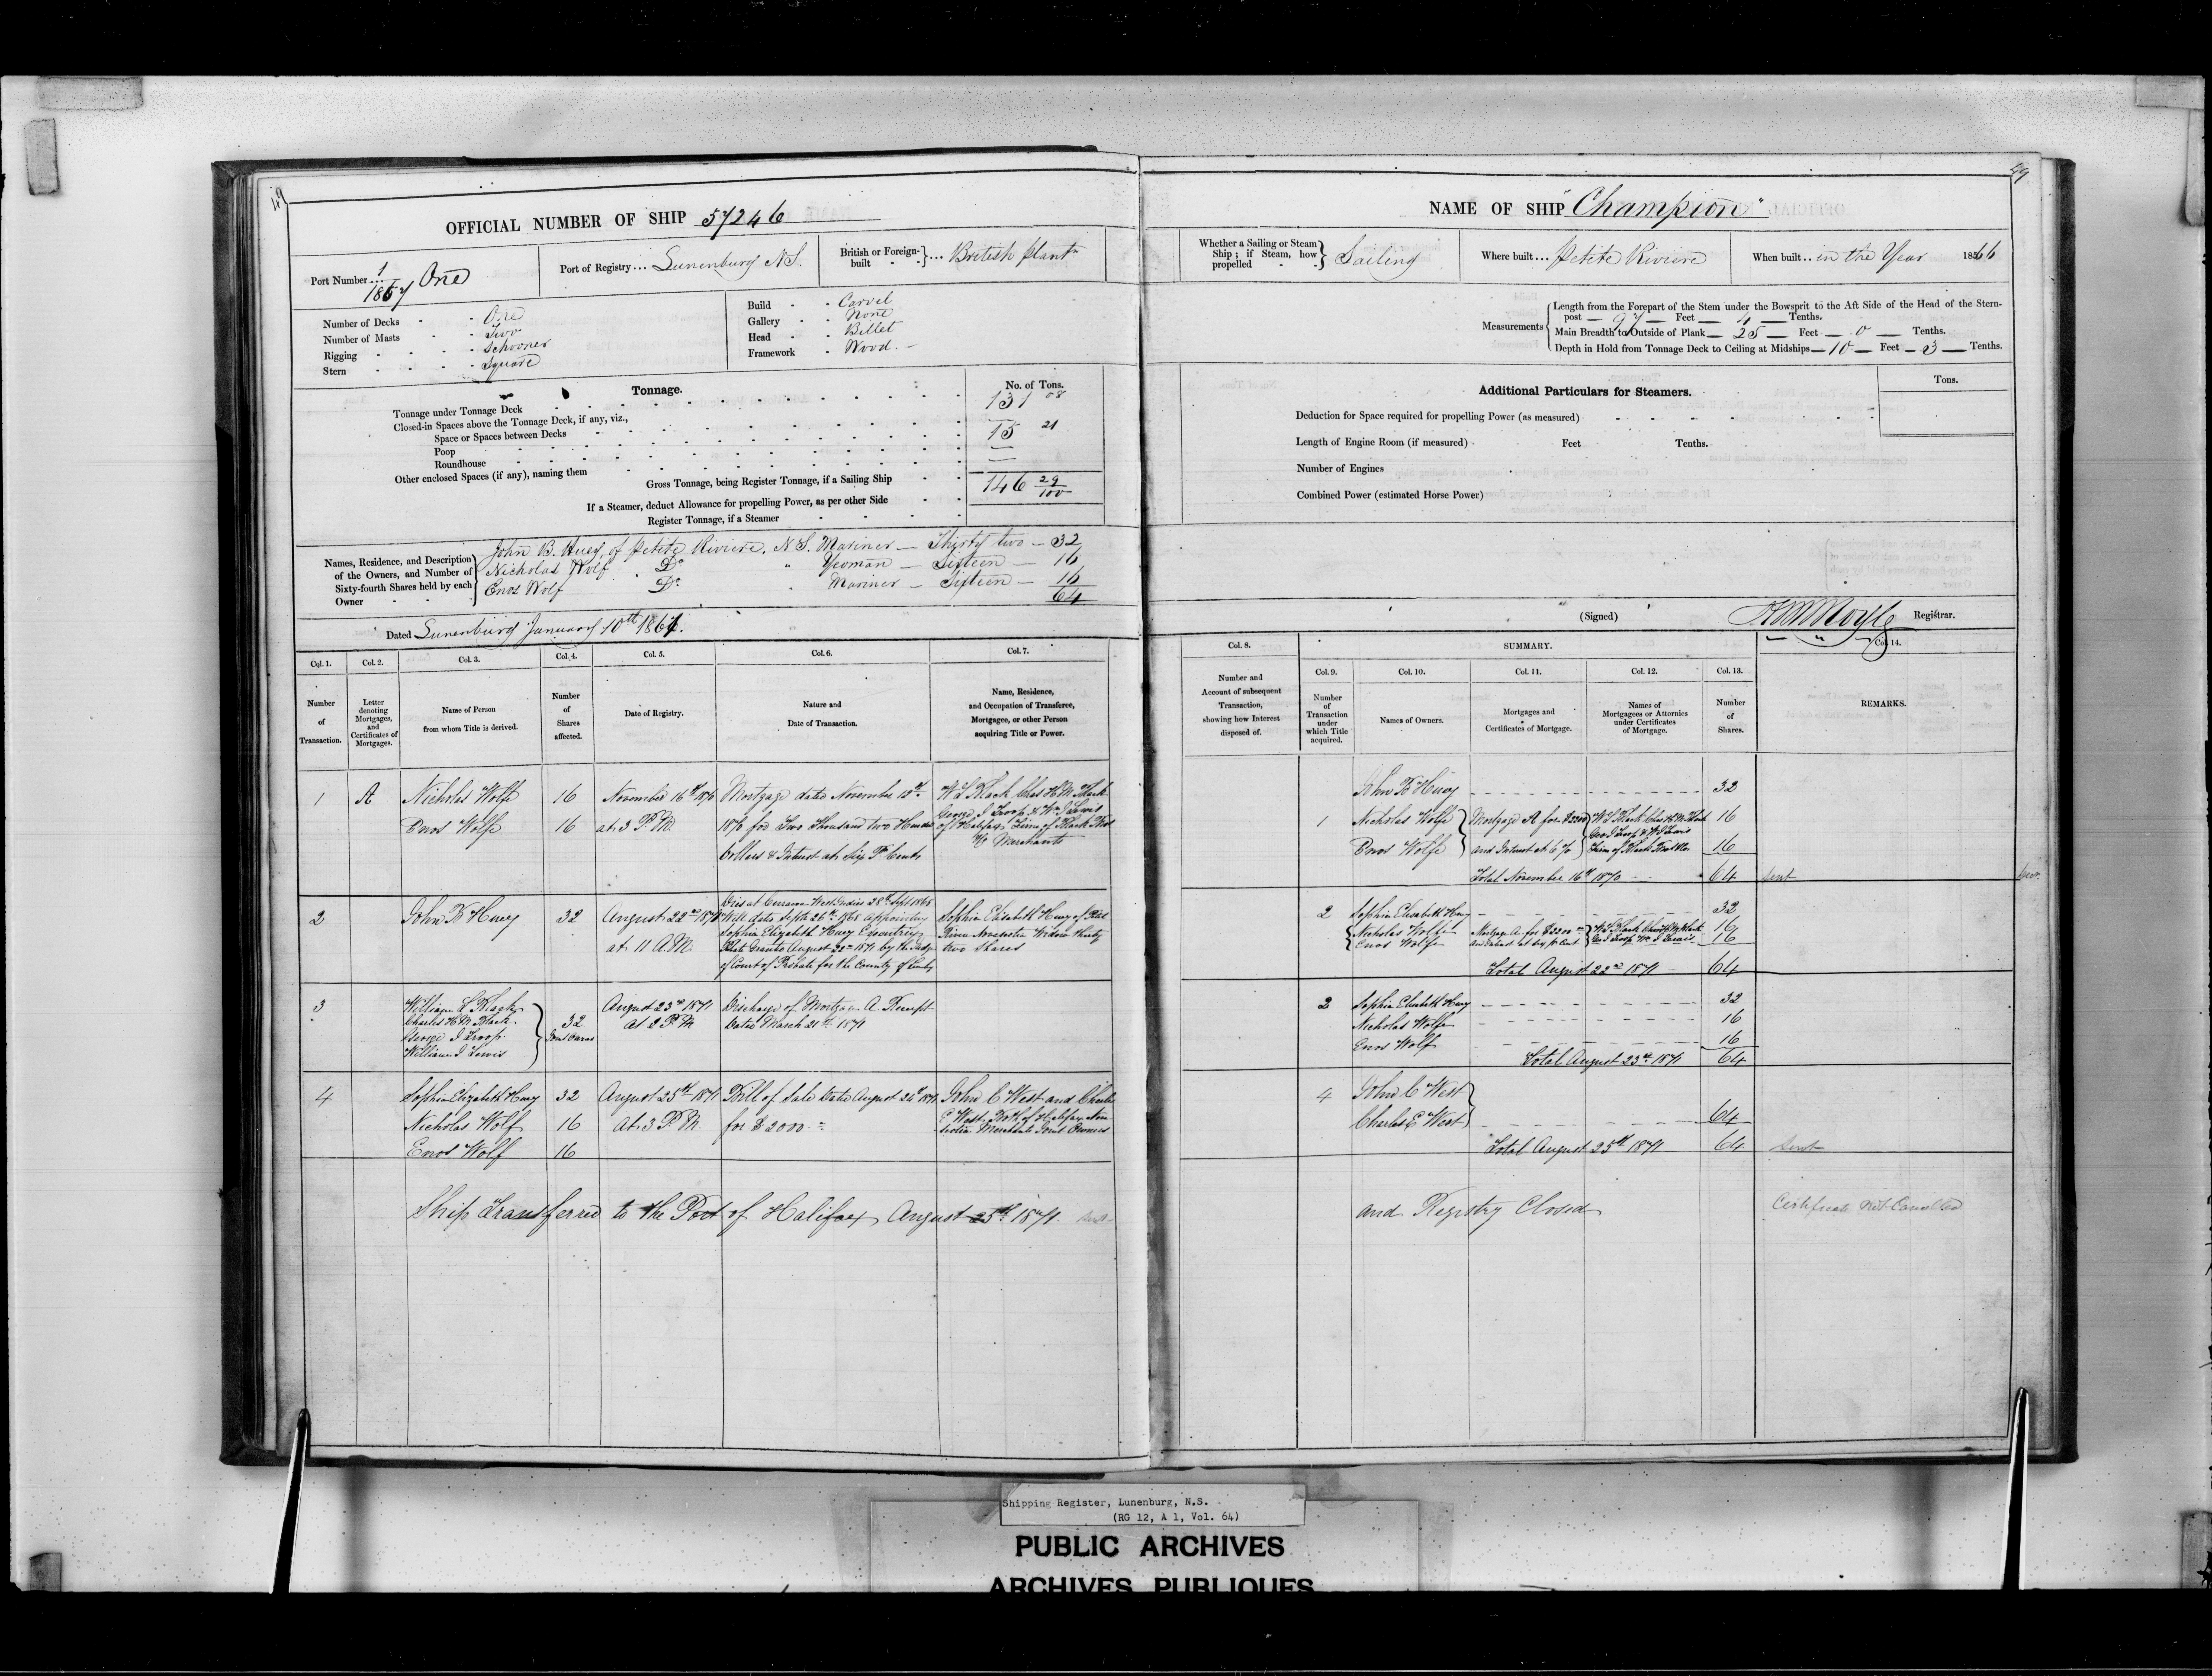 49
OFFICIAL NUMBER OF SHIP 57246
Port Number 1/1867 One
Port of Registry... Lunenburg N.S.
British or Foreign-built } ... British plantn
Number of Decks - - One
Number of Masts - - Two
Rigging - - - Schooner
Stern - - - Square
Build - - Carvel
Gallery - - None
Head - - Billet
Framework - Wood
Tonnage.
No. of Tons.
Tonnage under Tonnage Deck 131 08
Closed-in Spaces above the Tonnage Deck, if any, viz.,
Space or Spaces between Decks 15 21
Poop
Roundhouse
Other enclosed Spaces (if any), naming them
Gross Tonnage, being Register Tonnage, if a Sailing Ship 146 29/100
If a Steamer, deduct Allowance for propelling Power, as per other Side
Register Tonnage, if a Steamer
Names, Residence, and Description of the Owners, and Number of Sixty-fourth Shares held by each Owner
John B. Huey, of Petite Riviere, N.S. Mariner — Thirty two — 32
Nicholas Wolf Do " Yeoman — Sixteen — 16
Enos Wolf Do " Mariner — Sixteen — 16
64
Dated Lunenburg January 10th 1867.
Col. 1. Col. 2. Col. 3. Col. 4. Col. 5. Col. 6. Col. 7.
Number of Transaction.
Letter denoting Mortgages, and Certificates of Mortgages.
Name of Person from whom Title is derived.
Number of Shares affected.
Date of Registry.
Nature and Date of Transaction.
Name, Residence, and Occupation of Transferee, Mortgagee, or other Person acquiring Title or Power.
1 A Nicholas Wolfe 16 November 16th 1870 Mortgage dated November 15th W L Black Chas H M Black
Enos Wolfe 16 at 3 P.M. 1870 for Two Thousand two Hundred George J Troop & Wm J Lewis
of Halifax Firm of Black Bros
Dollars & Interest at Six Pr Cent Merchants
2 John B Huey 32 August 22nd 1871 Died at Curracoa West Indies 28th Sept 1868
Will dated Septr 26th 1868 appointing Sophia Elizabeth Huey of Petite
at 11 A.M. Sophia Elizabeth Huey Executrix Riviere Novascotia Widow thirty
Probate Granted August 22nd 1871 by the Judge two Shares
of Court of Probate for the County of
3 William L Black August 23rd 1871 Discharge of Mortgage A Receipt
Charles H M Black 32 at 2 P.M. Dated March 21st 1871
George J Troop Joint Owners
William J Lewis
4 Sophia Elizabeth Huey 32 August 25th 1871 Bill of Sale Dated August 24th 1871 John C West and Charles
Nicholas Wolf 16 At 3 P.M. for $2000 E West Both of Halifax Nova
Scotia Merchants Joint Owners
Enos Wolf 16
Ship Transferred to the Port of Halifax August 25th 1871. Sent
49
NAME OF SHIP "Champion"
Whether a Sailing or Steam Ship; if Steam, how propelled } Sailing
Where built... Petite Riviere
When built... in the Year 1866
Measurements
Length from the Forepart of the Stem under the Bowsprit to the Aft Side of the Head of the Stern-
post — 97 — Feet — 4 — Tenths.
Main Breadth to Outside of Plank — 25 — Feet — 0 — Tenths.
Depth in Hold from Tonnage Deck to Ceiling at Midships — 10 — Feet — 3 — Tenths.
Additional Particulars for Steamers.
Tons.
Deduction for Space required for propelling Power (as measured)
Length of Engine Room (if measured) Feet Tenths.
Number of Engines
Combined Power (estimated Horse Power)
(Signed) Registrar.
Col. 8. SUMMARY. Col. 14.
Col. 9. Col. 10. Col. 11. Col. 12. Col. 13.
Number and Account of subsequent Transaction, showing how Interest disposed of.
Number of Transaction under which Title acquired.
Names of Owners.
Mortgages and Certificates of Mortgage.
Names of Mortgagees or Attornies under Certificates of Mortgage.
Number of Shares.
REMARKS.
John B Huey 32
1 Nicholas Wolfe Mortgage A for $2200 W L Black Chas H M Black 16
Geo J Troop & W J Lewis
Enos Wolfe and Interest at 6 % Firm of Black Bros & Co. 16
Total November 16th 1870 64 Sent
2 Sophia Elizabeth Huey 32
Nicholas Wolfe Mortgage A for $2200 W L Black Chas H M Black 16
Enos Wolfe and Interest at Six pr Cent Geo J Troop Wm J Lewis 16
Total August 22nd 1871 64
2 Sophia Elizabeth Huey 32
Nicholas Wolfe 16
Enos Wolf 16
Total August 23rd 1871 64
4 John C West
Charles E West 64
Total August 25th 1871 64 Sent
and Registry Closed
Certificate Not Cancelled
Shipping Register, Lunenburg, N.S.
(RG 12, A 1, Vol. 64)
PUBLIC ARCHIVES
ARCHIVES PUBLIQUES